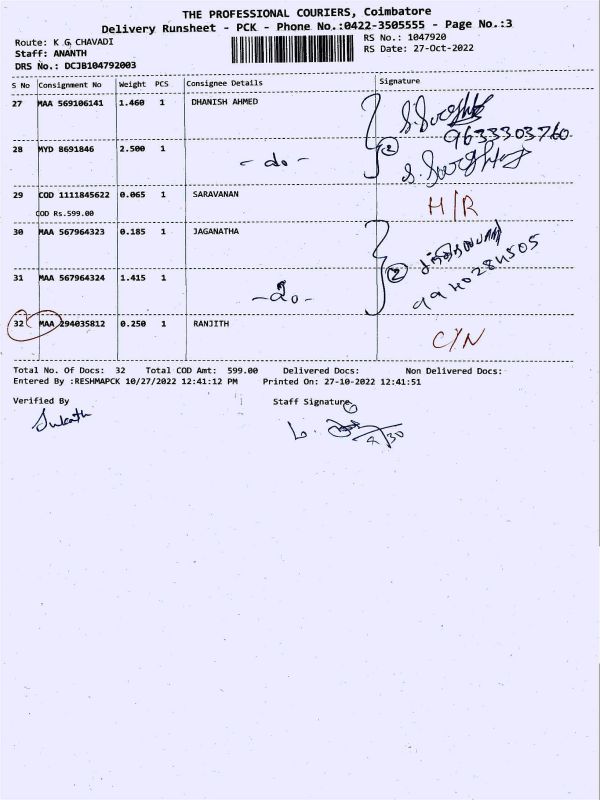 THE PROFESSIONAL COURIERS, Coimbatore
Delivery Runsheet - PCK - Phone No.:0422-3505555 - Page No.:3
Route: K G CHAVADI
RS No.: 1047920
Staff: ANANTH
RS Date: 27-Oct-2022
DRS No.: DCJB104792003
S No Consignment No Weight PCS Consignee Details Signature
27 MAA 569106141 1.460 1 DHANISH AHMED
9633303760
28 MYD 8691846 2.500 1 - do - 2
29 COD 1111845622 0.065 1 SARAVANAN H/R
COD Rs.599.00
30 MAA 567964323 0.185 1 JAGANATHA
31 MAA 567964324 1.415 1 - do - 2
32 MAA 294035812 0.250 1 RANJITH C/N
Total No. Of Docs: 32 Total COD Amt: 599.00 Delivered Docs: Non Delivered Docs:
Entered By :RESHMAPCK 10/27/2022 12:41:12 PM Printed On: 27-10-2022 12:41:51
Verified By Staff Signature